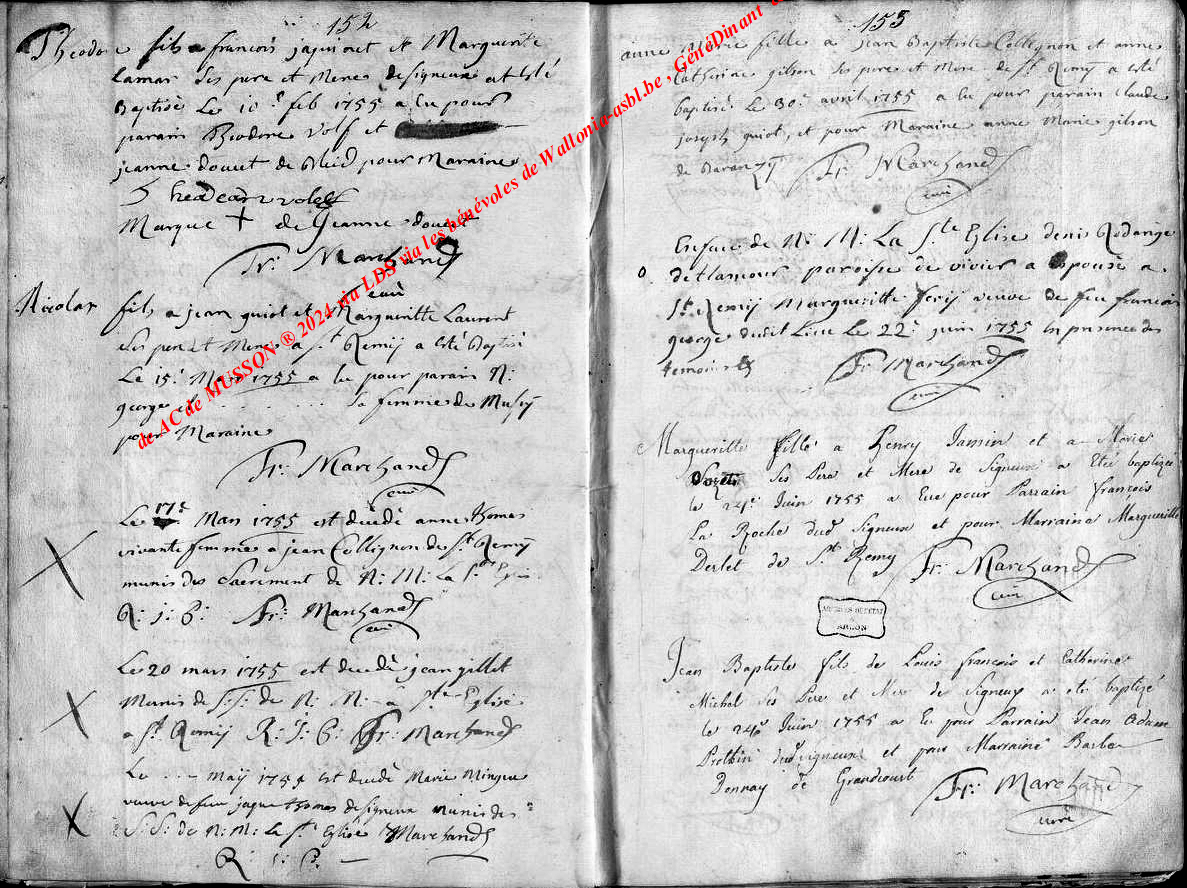 152
Theodore fils a francois jaquinet et Marguerite
Lamar ses pere et Mere de signeux at esté
Baptisé Le 10e feb 1755 a eu pour
parain Theodore Volf et
jeanne douet de Bleid pour Maraine
Marque + de Jeanne douet
Fr: Marchand
curé
Nicolas fils a jean guiot et Margueritte Laurent
ses pere et Mere a St Remij a esté Baptisé
Le 15e Mars 1755 a eu pour parain N:
george et . . . . . . la femme de Musy
pour Maraine
Fr: Marchand
curé
Le 17e Mars 1755 est decedè anne thomas
vivante femme a jean Collignon de St Remij
munis des Sacrement de N: M: La Ste Eglise
R: j: P: Fr: Marchand
curé
Le 20 mars 1755 est decedè jean gillet
Munis de S:S: de N: M: La Ste Eglise
a St Remij R: J: P: Fr: Marchand
Le . . . Maÿ 1755 est decedè Marie Mingue
veuve de feu jaque thomas de signeux munis des
S:S: de N: M: la Ste Eglise Marchand
R : P:
153
anne Marie fille a jean Baptiste Collignon et anne
Catherine gilson ses pere et Mere de St Remÿ a esté
baptisé Le 30e avril 1755 a eu pour parain claude
joseph guiot, et pour Maraine anne Marie gilson
de Baranzÿ Fr: Marchand
curé
En face de N: M: La Ste Eglise denis Rodange
de tlamour paroisse de vivier a espousé a
St Remij Margueritte ferij veuve de feu francois
george dudit Lieu Le 22e juin 1755 en presence des
temoins
Fr: Marchand
curé
Margueritte fille a Henry Jamin et a Marie
Ses Pere et Mere de Signeux a Eté baptizée
le 24e Juin 1755 a Eue pour Parrain François
La Roche dud Signeux et pour Marraine Margueritte
Derlet de St Remy Fr: Marchand
curé
ARCHIVES DE L'ETAT
ARLON
Jean Baptiste fils de Louis françois et Catherine
Michel ses Pere et Mere de Signeux a eté baptizé
le 24e Juin 1755 a Eu pour Parrain Jean Adam
Prothin dud signeux et pour Marraine Barbe
Dennay de Grandcourt Fr: Marchand
curé
de AC de MUSSON ® 2024 via LDS via les bénévoles de Wallonia-asbl.be , GénéDinant